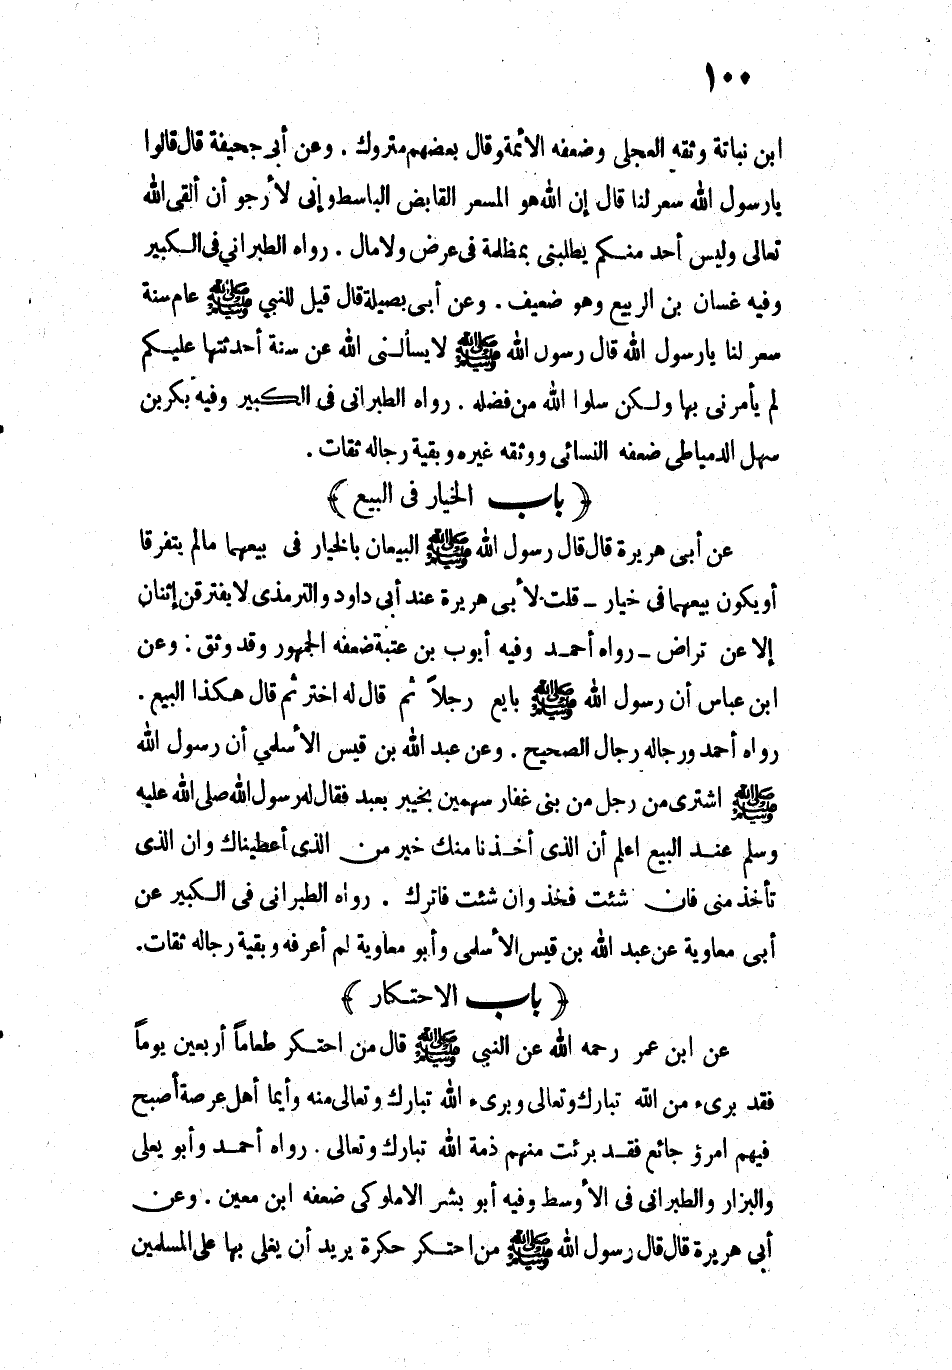 ١٠٠
ابن نباتة وثقه العجلى وضعفه الأئمة وقال بعضهم متروك . وعن أبى جحيفة قال قالوا
يارسول الله سعر لنا قال إن الله هو المسعر القابض الباسط وإنى لأرجو أن ألقى الله
تعالى وليس أحد منكم يطلبنى بمظلمة فى عرض ولا مال . رواه الطبراني فى الكبير
وفيه غسان بن الربيع وهو ضعيف . وعن أبى بصيلة قال قيل للنبي ﷺ عام سنة
سعر لنا يارسول الله قال رسول الله ﷺ لا يسألنى الله عن سنة أحدثتها عليكم
لم يأمرنى بها ولكن سلوا الله من فضله . رواه الطبرانى فى الكبير وفيه بكر بن
سهل الدمياطى ضعفه النسائى ووثقه غيره وبقية رجاله ثقات .
﴿ باب الخيار فى البيع ﴾
عن أبى هريرة قال قال رسول الله ﷺ البيعان بالخيار فى بيعهما مالم يتفرقا
أو يكون بيعهما فى خيار ــ قلت لأبى هريرة عند أبى داود والترمذى لا يفترقن إثنان
إلا عن تراض ــ رواه أحمد وفيه أيوب بن عتبة ضعفه الجمهور وقد وثق : وعن
ابن عباس أن رسول الله ﷺ بايع رجلاً ثم قال له اختر ثم قال هكذا البيع .
رواه أحمد ورجاله رجال الصحيح . وعن عبد الله بن قيس الأسلمي أن رسول الله
ﷺ اشترى من رجل من بنى غفار سهمين بخيبر بعبد فقال له رسول الله صلى الله عليه
وسلم عند البيع اعلم أن الذى أخذنا منك خير من الذى أعطيناك وان الذى
تأخذ منى فان شئت فخذ وان شئت فاترك . رواه الطبرانى فى الكبير عن
أبى معاوية عن عبد الله بن قيس الأسلمى وأبو معاوية لم أعرفه وبقية رجاله ثقات.
﴿ باب الاحتكار ﴾
عن ابن عمر رحمه الله عن النبي ﷺ قال من احتكر طعاماً أربعين يوماً
فقد برىء من الله تبارك وتعالى وبرىء الله تبارك وتعالى منه وأيما أهل عرصة أصبح
فيهم امرؤ جائع فقد برئت منهم ذمة الله تبارك وتعالى . رواه أحمد وأبو يعلى
والبزار والطبرانى فى الأوسط وفيه أبو بشر الاملوكى ضعفه ابن معين . وعن
أبى هريرة قال قال رسول الله ﷺ من احتكر حكرة يريد أن يغلى بها على المسلمين